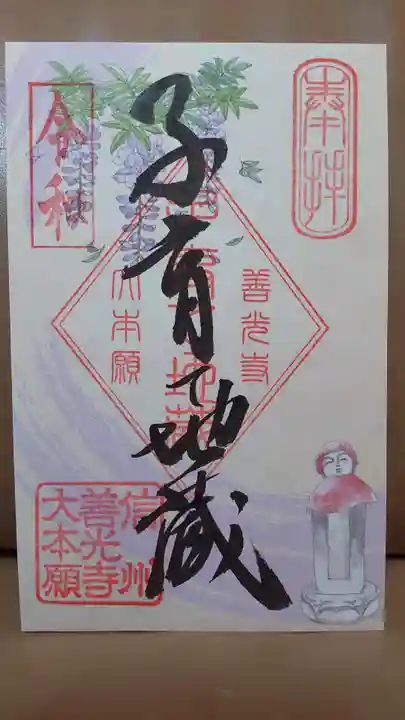 奉拝
善光寺
子育地蔵
大本願
令和
信州
善光寺
大本願